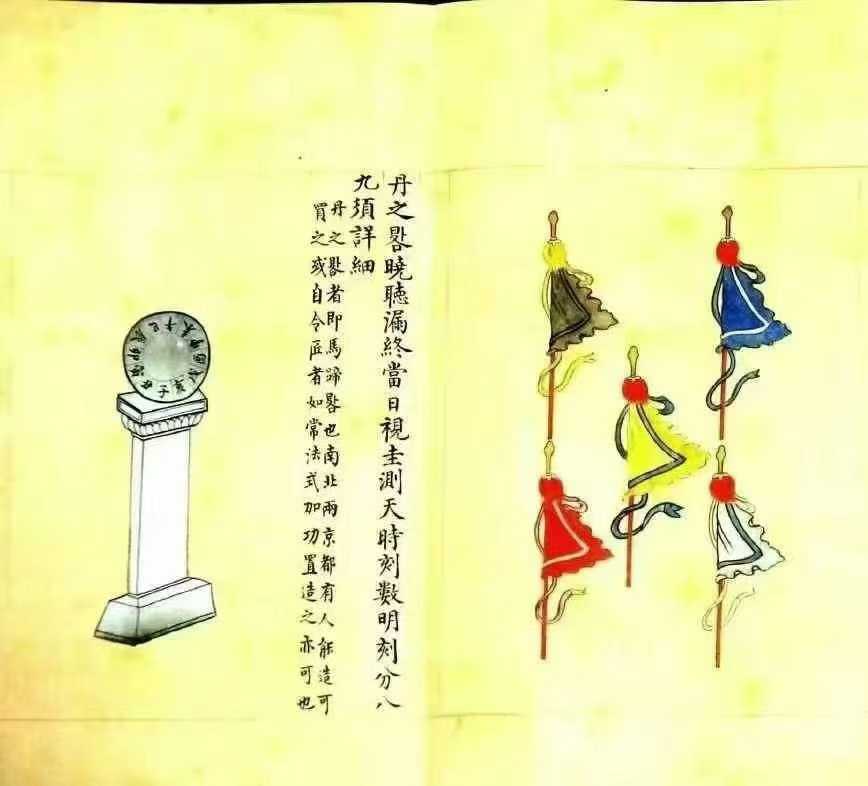 丹之晷曉聽漏終當日視圭測天時刻數明刻分八
九須詳細
丹之晷者即馬蹄晷也南北兩京都有人能造可
買之或自令匠者如常法式加功置造之亦可也
子丑寅卯辰巳午未申酉戌亥